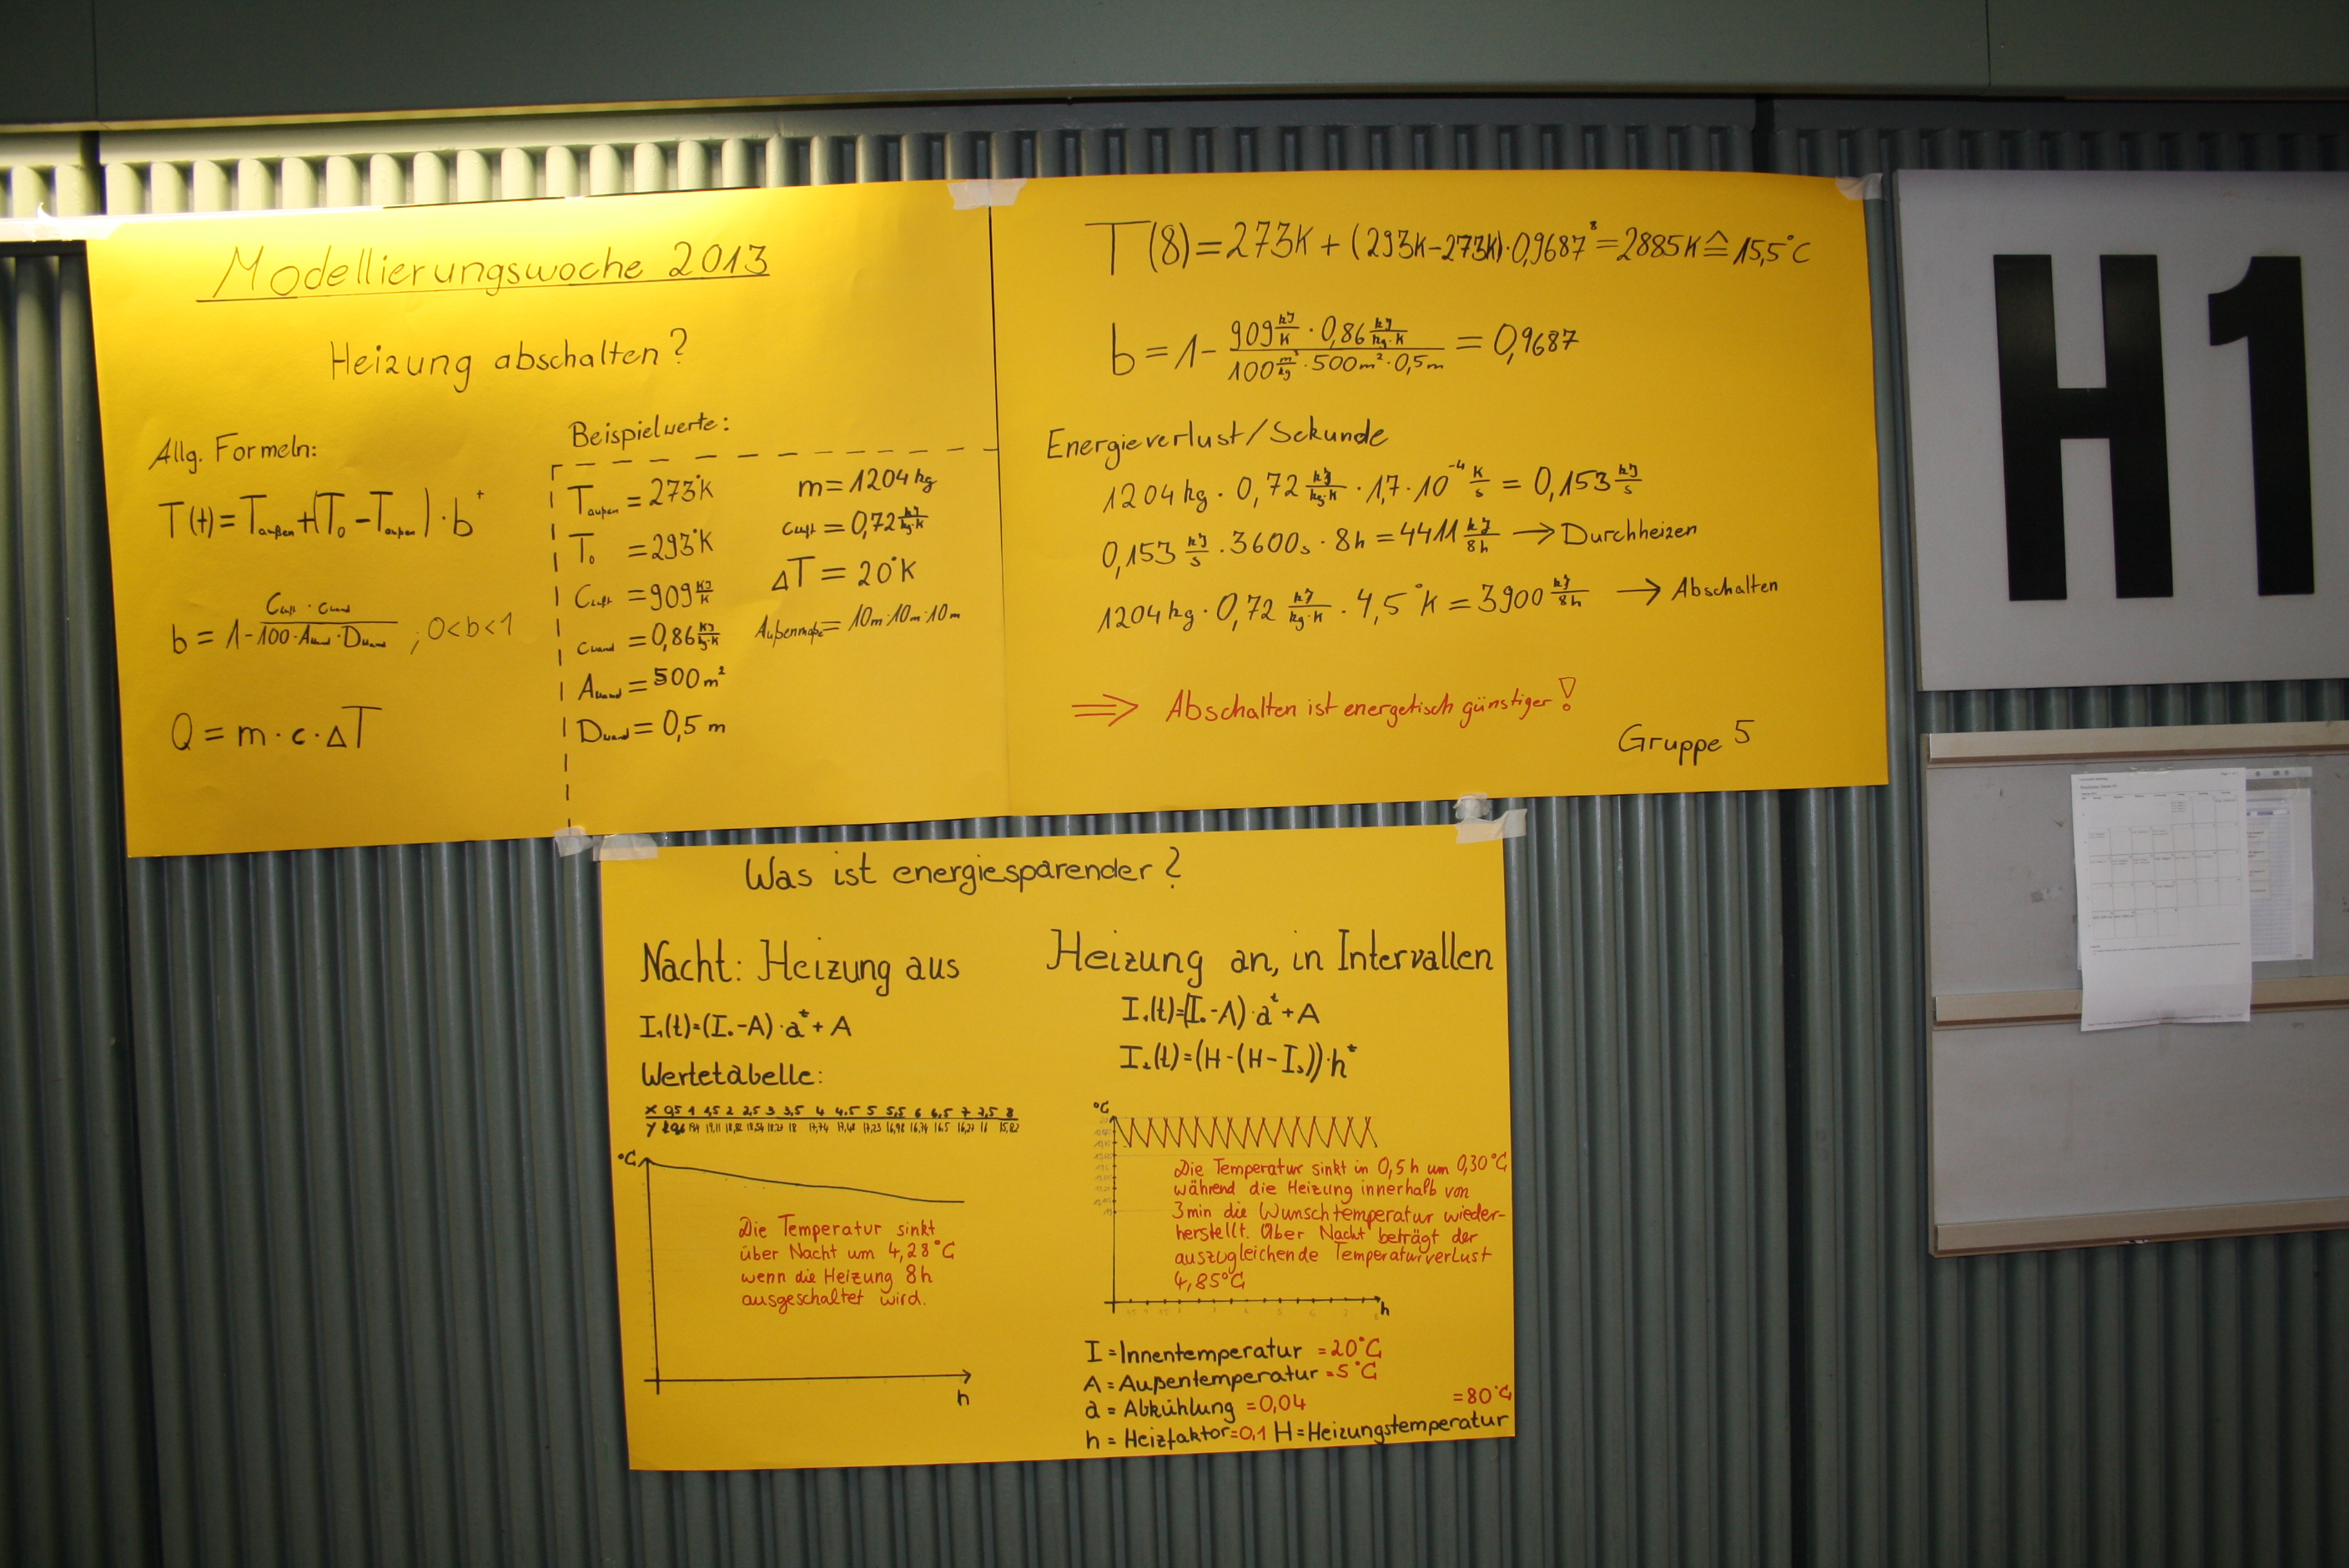 Modellierungswoche 2013
Heizung abschalten?
Allg. Formeln:
T(t) = T_außen + (T_0 - T_außen) · b^t
b = 1 - (C_Luft · c_Wand) / (100 · A_Wand · D_Wand) ; 0 < b < 1
Q = m · c · ΔT
Beispielwerte:
T_außen = 273°K
T_0 = 293°K
C_Luft = 909 KJ/K
c_Wand = 0,86 KJ/kg·K
A_Wand = 500 m²
D_Wand = 0,5 m
m = 1204 kg
c_Luft = 0,72 kJ/kg·K
ΔT = 20°K
Außenmaße = 10m·10m·10m
T(8) = 273K + (293K - 273K) · 0,9687^8 = 2885K ≙ 15,5°C
b = 1 - (909 kJ/K · 0,86 kJ/kg·K) / (100 m³/kg · 500m² · 0,5m) = 0,9687
Energieverlust/Sekunde
1204 kg · 0,72 kJ/kg·K · 1,7 · 10^-4 K/s = 0,153 kJ/s
0,153 kJ/s · 3600s · 8h = 4411 kJ/8h → Durchheizen
1204 kg · 0,72 kJ/kg·K · 4,5°K = 3900 kJ/8h → Abschalten
⇒ Abschalten ist energetisch günstiger!
Gruppe 5
H1
Was ist energiesparender?
Nacht: Heizung aus
I₁(t)=(I₀-A)·a^t + A
Wertetabelle:
x 0,5 1 1,5 2 2,5 3 3,5 4 4,5 5 5,5 6 6,5 7 7,5 8
y 19,4 19,11 18,82 18,54 18,27 18 17,74 17,48 17,23 16,98 16,74 16,5 16,27 16 15,82
°C
Die Temperatur sinkt
über Nacht um 4,28°C
wenn die Heizung 8h
ausgeschaltet wird.
h
Heizung an, in Intervallen
I₁(t)=(I₀-A)·a^t + A
I₂(t)=(H-(H-I₃))·h^t
°C
Die Temperatur sinkt in 0,5h um 0,30°C
während die Heizung innerhalb von
3min die Wunschtemperatur wieder-
herstellt. Über Nacht beträgt der
auszugleichende Temperaturverlust
4,85°C
h
I = Innentemperatur = 20°C
A = Außentemperatur = 5°C
a = Abkühlung = 0,04
h = Heizfaktor = 0,1 H = Heizungstemperatur = 80°C